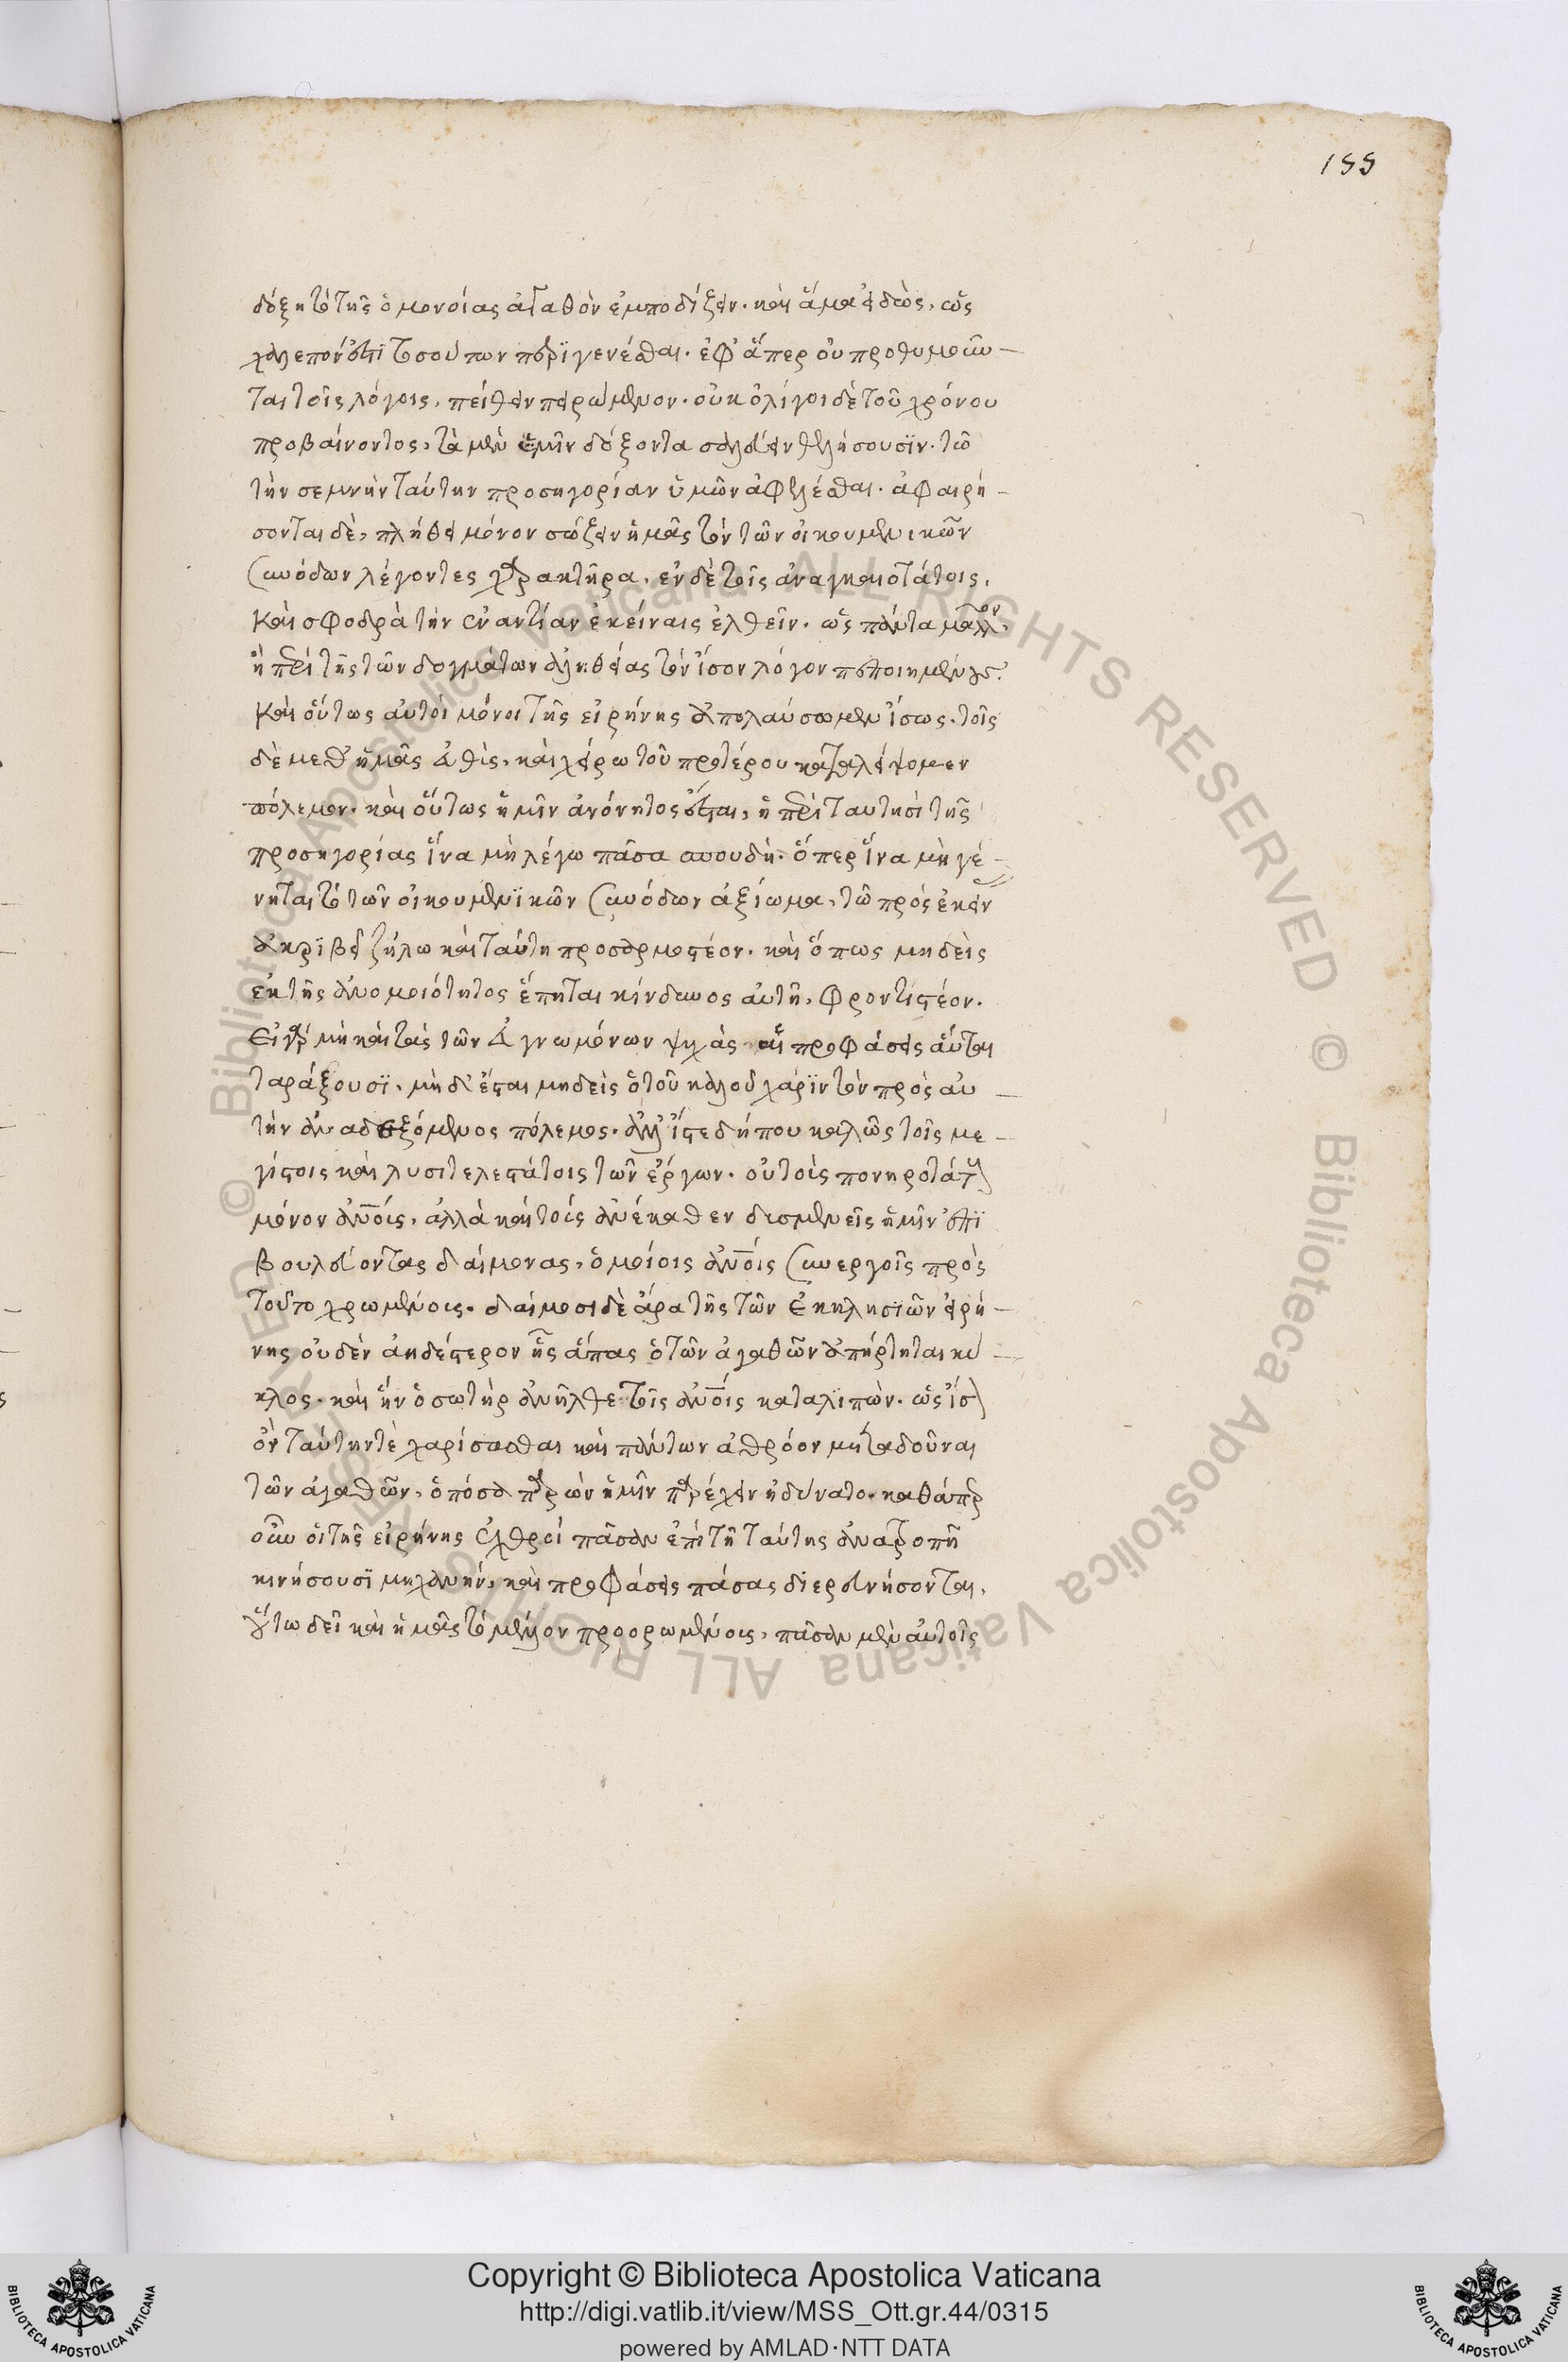 155
δόξη τὸ τῆς ὁμονοίας ἀγαθὸν ἐμποδίζειν. καὶ ἅμα εἰδὼς, ὡς
χαλεπόν ἐστι τοσούτων περϊγενέσθαι. ἐφ' ἅπερ οὐ προθυμοῦν-
ται τοῖς λόγοις, πείθειν πειρώμενον. οὐκ ὀλίγοι δὲ τοῦ χρόνου
προβαίνοντος, τὰ μὲν ἡμῖν δόξοντα σαλεύειν θελήσουσϊν. τῶ
τὴν σεμνὴν ταύτην προσηγορίαν ὑμῶν ἀφελέσθαι. ἀφαιρή-
σονται δὲ, πλήθει μόνον σώζειν ἡμᾶς τὸν τῶν οἰκουμενικῶν
συνόδων λέγοντες χαρακτῆρα, ἐν δὲ τοῖς ἀναγκαιοτάτοις,
καὶ σφοδρὰ τὴν ἐναντίαν ἐκείναις ἐλθεῖν. ὡς πάντα μᾶλλον,
ἢ περὶ τῆς τῶν δογμάτων ἀληθείας τὸν ἴσον λόγον πεποιημένους.
καὶ οὕτως αὐτοὶ μόνοι τῆς εἰρήνης ἀπολαύσωμεν ἴσως. τοῖς
δὲ μεθ' ἡμᾶς αὖθις, καὶ χείρω τοῦ προτέρου καταλείψομεν
πόλεμον. καὶ οὕτως ἡμῖν ἀνόνητος ἔσται, ἡ περὶ ταυτησὶ τῆς
προσηγορίας ἵνα μὴ λέγω πᾶσα σπουδή. ὅπερ ἵνα μὴ γέ-
νηται τὸ τῶν οἰκουμενϊκῶν συνόδων ἀξίωμα, τῶ πρὸς ἐκείν
ἀκρϊβεῖ ζήλω καὶ ταύτη προσαρμοστέον. καὶ ὅπως μηδεὶς
ἐκ τῆς ἀνομοιότητος ἕπηται κίνδυνος αὐτῆ, φροντιστέον.
Εἰ γὰρ μὴ καὶ τὰς τῶν εὐγνωμόνων ψυχὰς αἱ προφάσεις αὗται
ταράξουσϊ, μὴ δ' ἔσται μηδεὶς ὁ τοῦ καλοῦ χάρϊν τὸν πρὸς αὐ-
τὴν ἀναδεξόμενος πόλεμος. ἀλλ' ἴστε δήπου καλῶς τοῖς με-
γίστοις καὶ λυσιτελεστάτοις τῶν ἔργων. οὐ τοὶς πονηροτάτους
μόνον ἀνθρώποις, ἀλλὰ καὶ τοὶς ἀνέκαθεν δυσμενεῖς ἡμῖν ἐπϊ
βουλεύοντας δαίμονας, ὁμοίοις ἀνθρώποις συνεργοῖς πρὸς
τοῦτο χρωμένοις. δαίμοσι δὲ ἄρα τῆς τῶν ἐκκλησϊῶν εἰρή-
νης οὐδὲν ἀηδέστερον ἧς ἅπας ὁ τῶν ἀγαθῶν ἀπήρτηται κύ-
κλος. καὶ ἣν ὁ σωτὴρ ἀνῆλθε τοῖς ἀνθρώποις καταλϊπὼν. ὡς ἴσ
ὂν ταύτην τὲ χαρίσασθαι καὶ πάντων ἀθρόον μεταδοῦναι
τῶν ἀγαθῶν, ὁπόσα παρὼν ἡμῖν παρέχειν ἠδύνατο. καθάπερ
οὖν οἱ τῆς εἰρήνης ἐχθροὶ πᾶσαν ἐπὶ τῆ ταύτης ἀνατροπῆ
κινήσουσϊ μηχανὴν, καὶ προφάσεις πάσας διερευνήσονται,
οὕτω δεῖ καὶ ἡμᾶς τὸ μέλλον προορωμένοις, πᾶσαν μὲν αὐτοῖς
Copyright © Biblioteca Apostolica Vaticana
http://digi.vatlib.it/view/MSS_Ott.gr.44/0315
powered by AMLAD·NTT DATA
BIBLIOTECA APOSTOLICA VATICANA
BIBLIOTECA APOSTOLICA VATICANA
© Biblioteca Apostolica Vaticana ALL RIGHTS RESERVED © Biblioteca Apostolica Vaticana ALL RIGHTS RESERVED